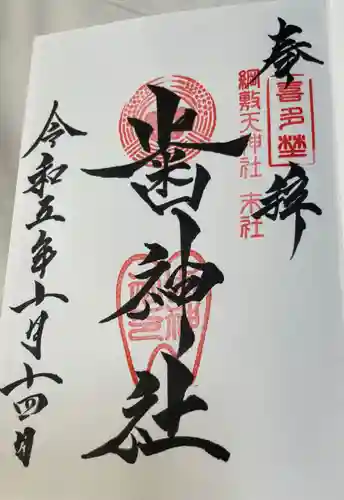 奉拝
喜多埜
綱敷天神社 末社
歯神社
令和五年十月十四日